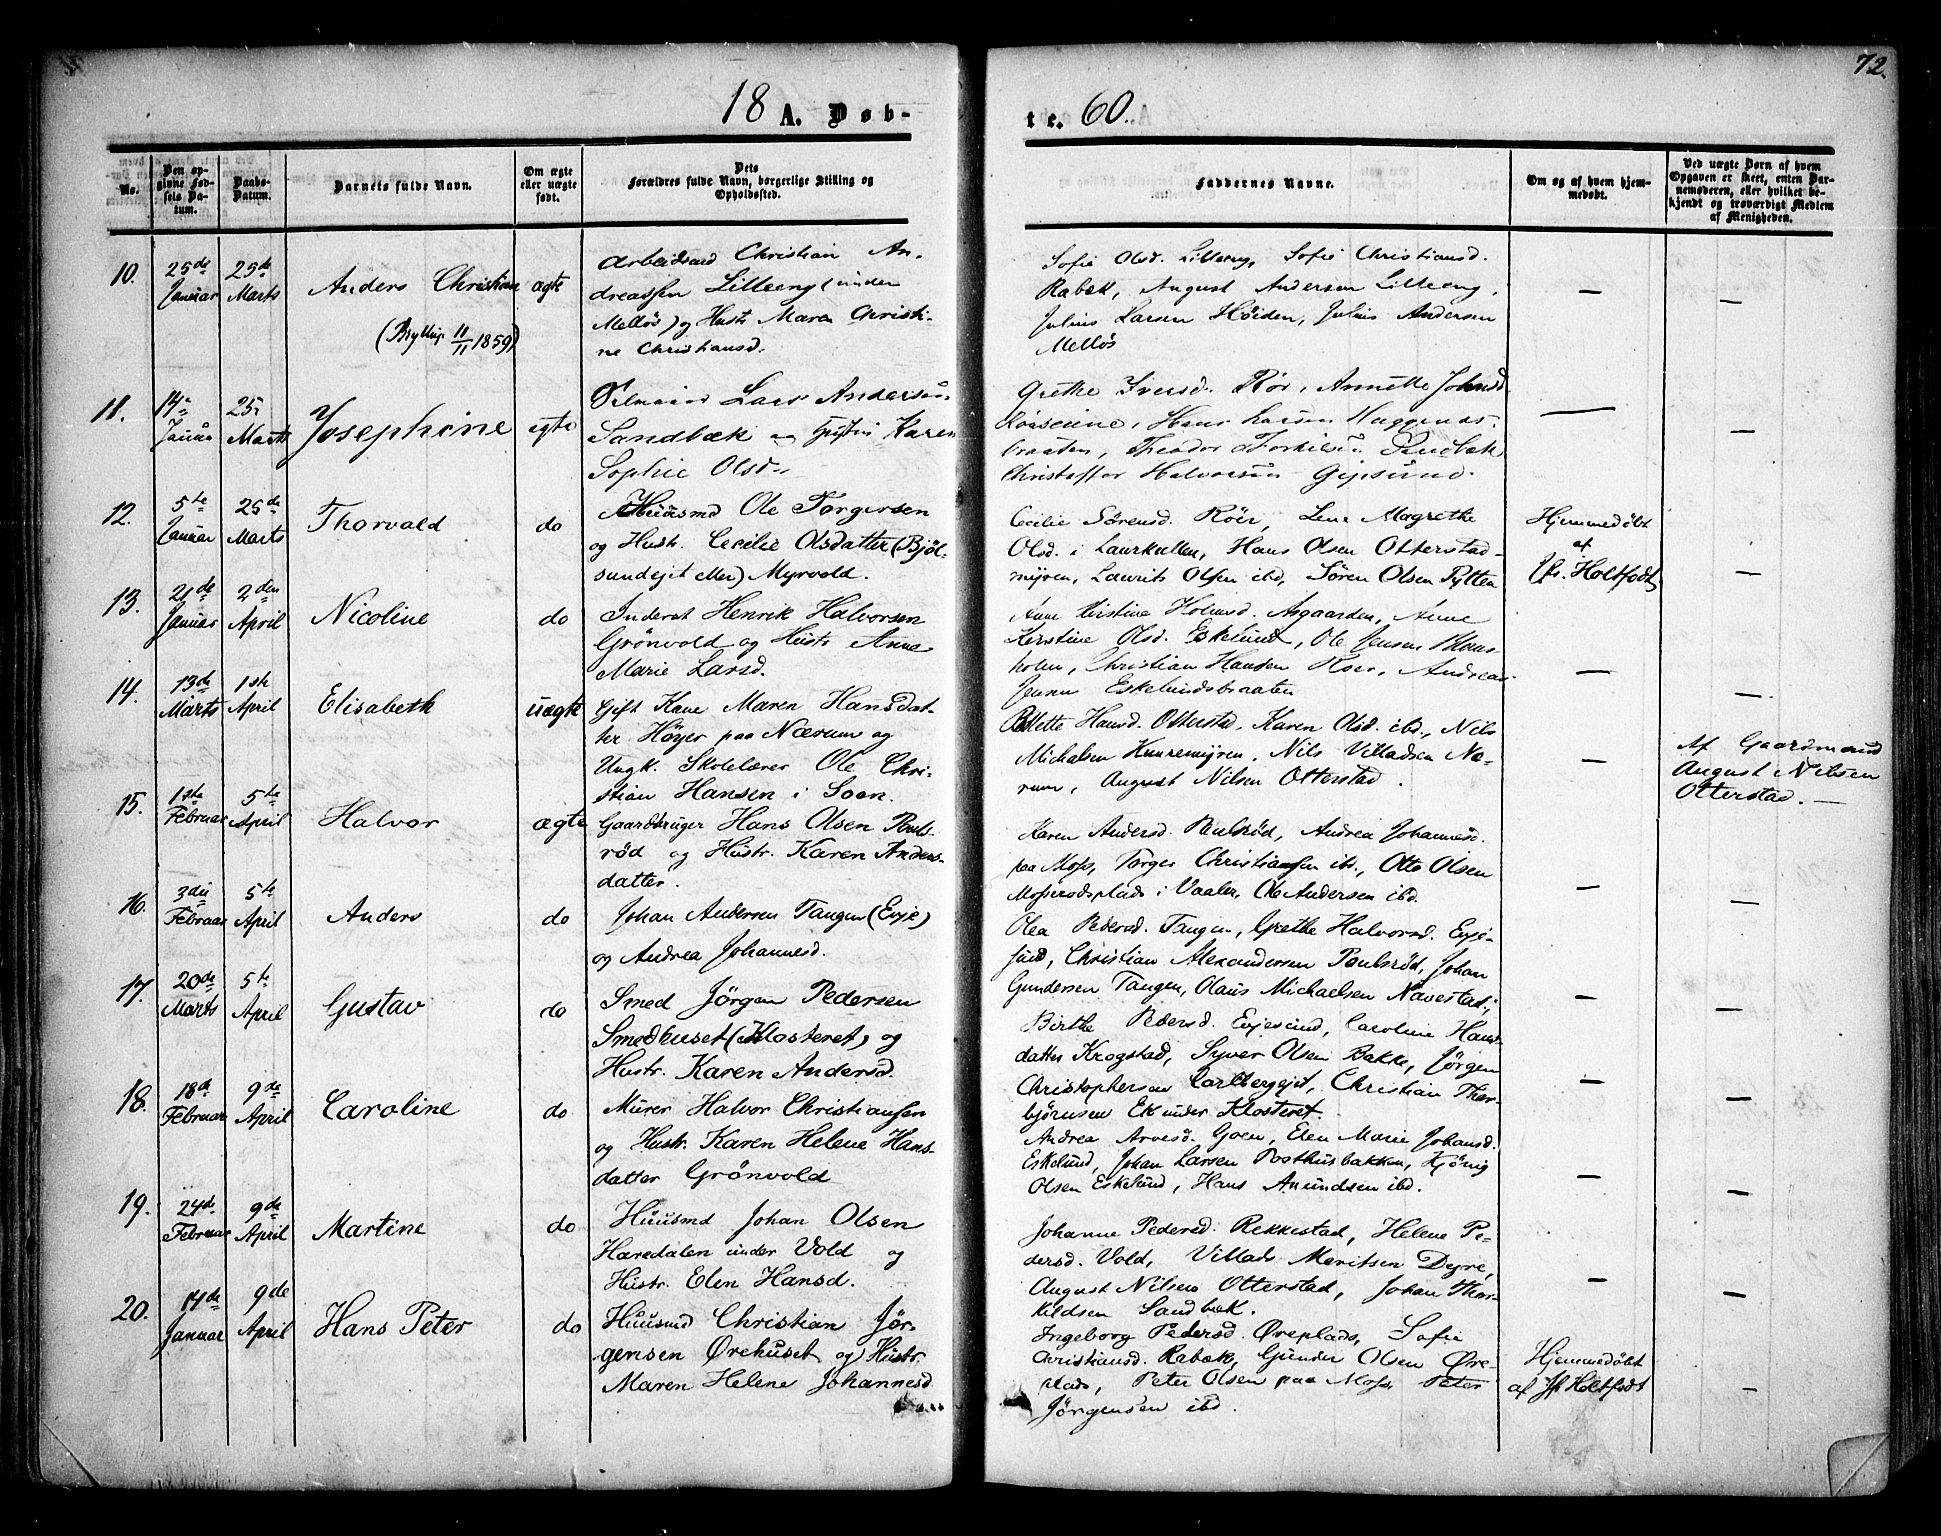 72.
18 A. Døb-
te. 60.
No.
Den op-
givne Fød-
sels Da-
tum.
Daabs-
Datum.
Barnets fulde Navn.
Om ægte
eller uægte
født.
Dets
Forældres fulde Navn, borgerlige Stilling og
Opholdssted.
Faddernes Navne.
Om og af hvem hjem-
medøbt.
Ved uægte Børn af hvem
Opgaven er skeet, enten Bar-
nemoderen, eller hvilket be-
kjendt og troværdigt Medlem
af Menigheden.
10.
25de
Januar
25de
Marts
Anders Christian
(Bryllup 11/11 1859)
ægte
Arbeidsmd Christian An-
dreassen Lilleeng (under
Melløs) og Hustr Maren Christi-
ne Christiansd.
Sofie Olsd. Lilleeng, Sofie Christiansd.
Rabæk, August Andersen Lilleeng,
Julius Larsen Høiden, Julius Andersen
Melløs
—
—
11.
14
Januar
25
Marts
Josephine
ægte
Lars Andersen
Sandbæk og Hustru Karen
Sophie Olsd.
Grethe Iversd. Rør, Annette Johnsd
Hans Larsen Huggenes-
braaten, Theodor Torkilsen Sandbæk
Christoffer Halvorsen Gipsund.
—
—
12.
5te
Januar
25de
Marts
Thorvald
do
Huusmd Ole Torgersen
og Hustr. Cecilie Olsdatter (Bjøl-
sundejet eller) Myrvold.
Cecilie Sørensd. Röer, Lene Magrethe
Olsd. i Laurkullen, Hans Olsen Otterstad-
myren, Laurits Olsen ibd, Søren Olsen Pytten
Hjemmedøbt
af
Jfr. Holtfodt
—
13.
21de
Januar
2den
April
Nicoline
do
Inderst Henrik Halvorsen
Grönvold og Hustr Anne
Marie Larsd.
Anne Kirstine Holmsd. Aasgaarden, Anne
Kerstine Olsd. Eskelund, Ole Jensen
holm, Christian Hansen Roer, Andreas
Jensen Eskelundsbraaten
—
—
14.
13de
Marts
1ste
April
Elisabeth
uægte
Gift Kone Maren Hansdat-
ter Höyer paa Nærum og
Ungk. Skolelærer Ole Chri-
stian Hansen i Soon.
Mette Hansd. Otterstad, Karen Olsd. ibd., Nils
Michalsen Knurremyren, Nils Villadsen Næ-
rum, August Nilsen Otterstad.
—
Af Gaardmand
August Nilsen
Otterstad. —
15.
1ste
Februar
5te
April
Halvor
ægte
Gaardbruger Hans Olsen Pouls-
röd og Hustr. Karen Anders-
datter.
Karen Andersd. Paulsröd, Andrea Johannesd.
paa Moss, Torger Christiansen ibd., Otto Olsen
Mosserødsplads i Vaaler, Ole Andersen ibd.
—
—
16.
3die
Februar
5te
April
Anders
do
Johan Andersen Tangen (Evje)
og Andrea Johannesd.
Olea Pedersd. Tangen, Grethe Halvorsd. Evje-
sund, Christian Alexandersen Paulsröd, Johan
Gundersen Tangen, Olaus Michaelsen Navestad.
—
—
17.
20de
Marts
5te
April
Gustav
do
Smed Jörgen Pedersen
Smedhuset (Klosteret) og
Hustr. Karen Andersd.
Birthe Pedersd. Evjesund, Caroline Hans-
datter Krogstad, Syver Olsen Bakke, Jörgen
Christophersen Carlbergejet, Christian Thor-
björnsen Ek under Klosteret.
—
—
18.
18de
Februar
9de
April
Caroline
do
Murer Halvor Christiansen
og Hustr. Karen Helene Hans-
datter Grönvold
Andrea Arvesd. Goen, Elen Marie Johansd.
Eskelund, Johan Larsen Posthusbakken, Hjönig
Olsen Eskelund, Hans Amundsen ibd.
—
—
19.
24de
Februar
9de
April
Martine
do
Huusmd Johan Olsen
Haredalen under Vold og
Hustr. Elen Hansd.
Johanne Pedersd. Rekkestad, Helene Pe-
dersd. Vold, Villads Moritsen Dyre,
August Nilsen Otterstad, Johan Thor-
kildsen Sandbæk.
—
—
20.
14de
Januar
9de
April
Hans Peter
do
Huusmd Christian Jör-
gensen Ørehuset og Hustr.
Maren Helene Johannesd.
Ingeborg Pedersd. Øreplads, Sofie
Christiansd. Rabæk, Gunder Olsen Øre-
plads, Peter Olsen paa Moss, Peter
Jörgensen ibd.
Hjemmedøbt
af Jfr Holtfodt
—